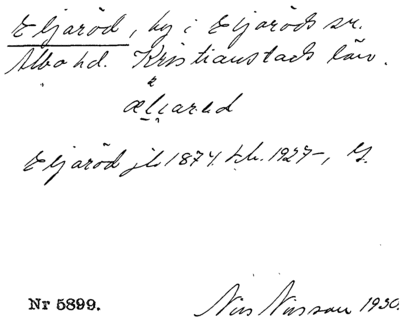 Eljaröd, by i Eljaröds sn.
Albo hd. Kristianstads län.
æljarud
Eljaröd jb 1874. t.k. 1927–,
Nr 5899.
Nils Nilsson 1930.